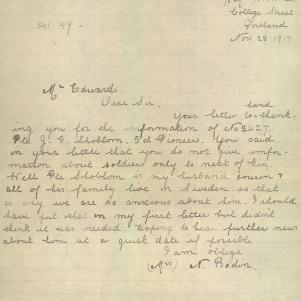 College Street
Portland
Nov 28 1917
341.49.
Mr Edwards.
Dear Sir.
Your letter to hand
thank-
ing you for the information of No 2427.
Pte J. E. Shoblom. 5th Pioneers. You said
in your letter that you do not give infor-
mation about soldiers only to next of kin.
Well Pte Shoblom is my husband cousin &
all of his family live in Sweden. so that
is why we are so anxious about him. I should
have put that in my first letter but didn't
think it was needed hoping to hear further news
about him at a quick date if possible
I am oblige
(Mrs) N. Bodin.